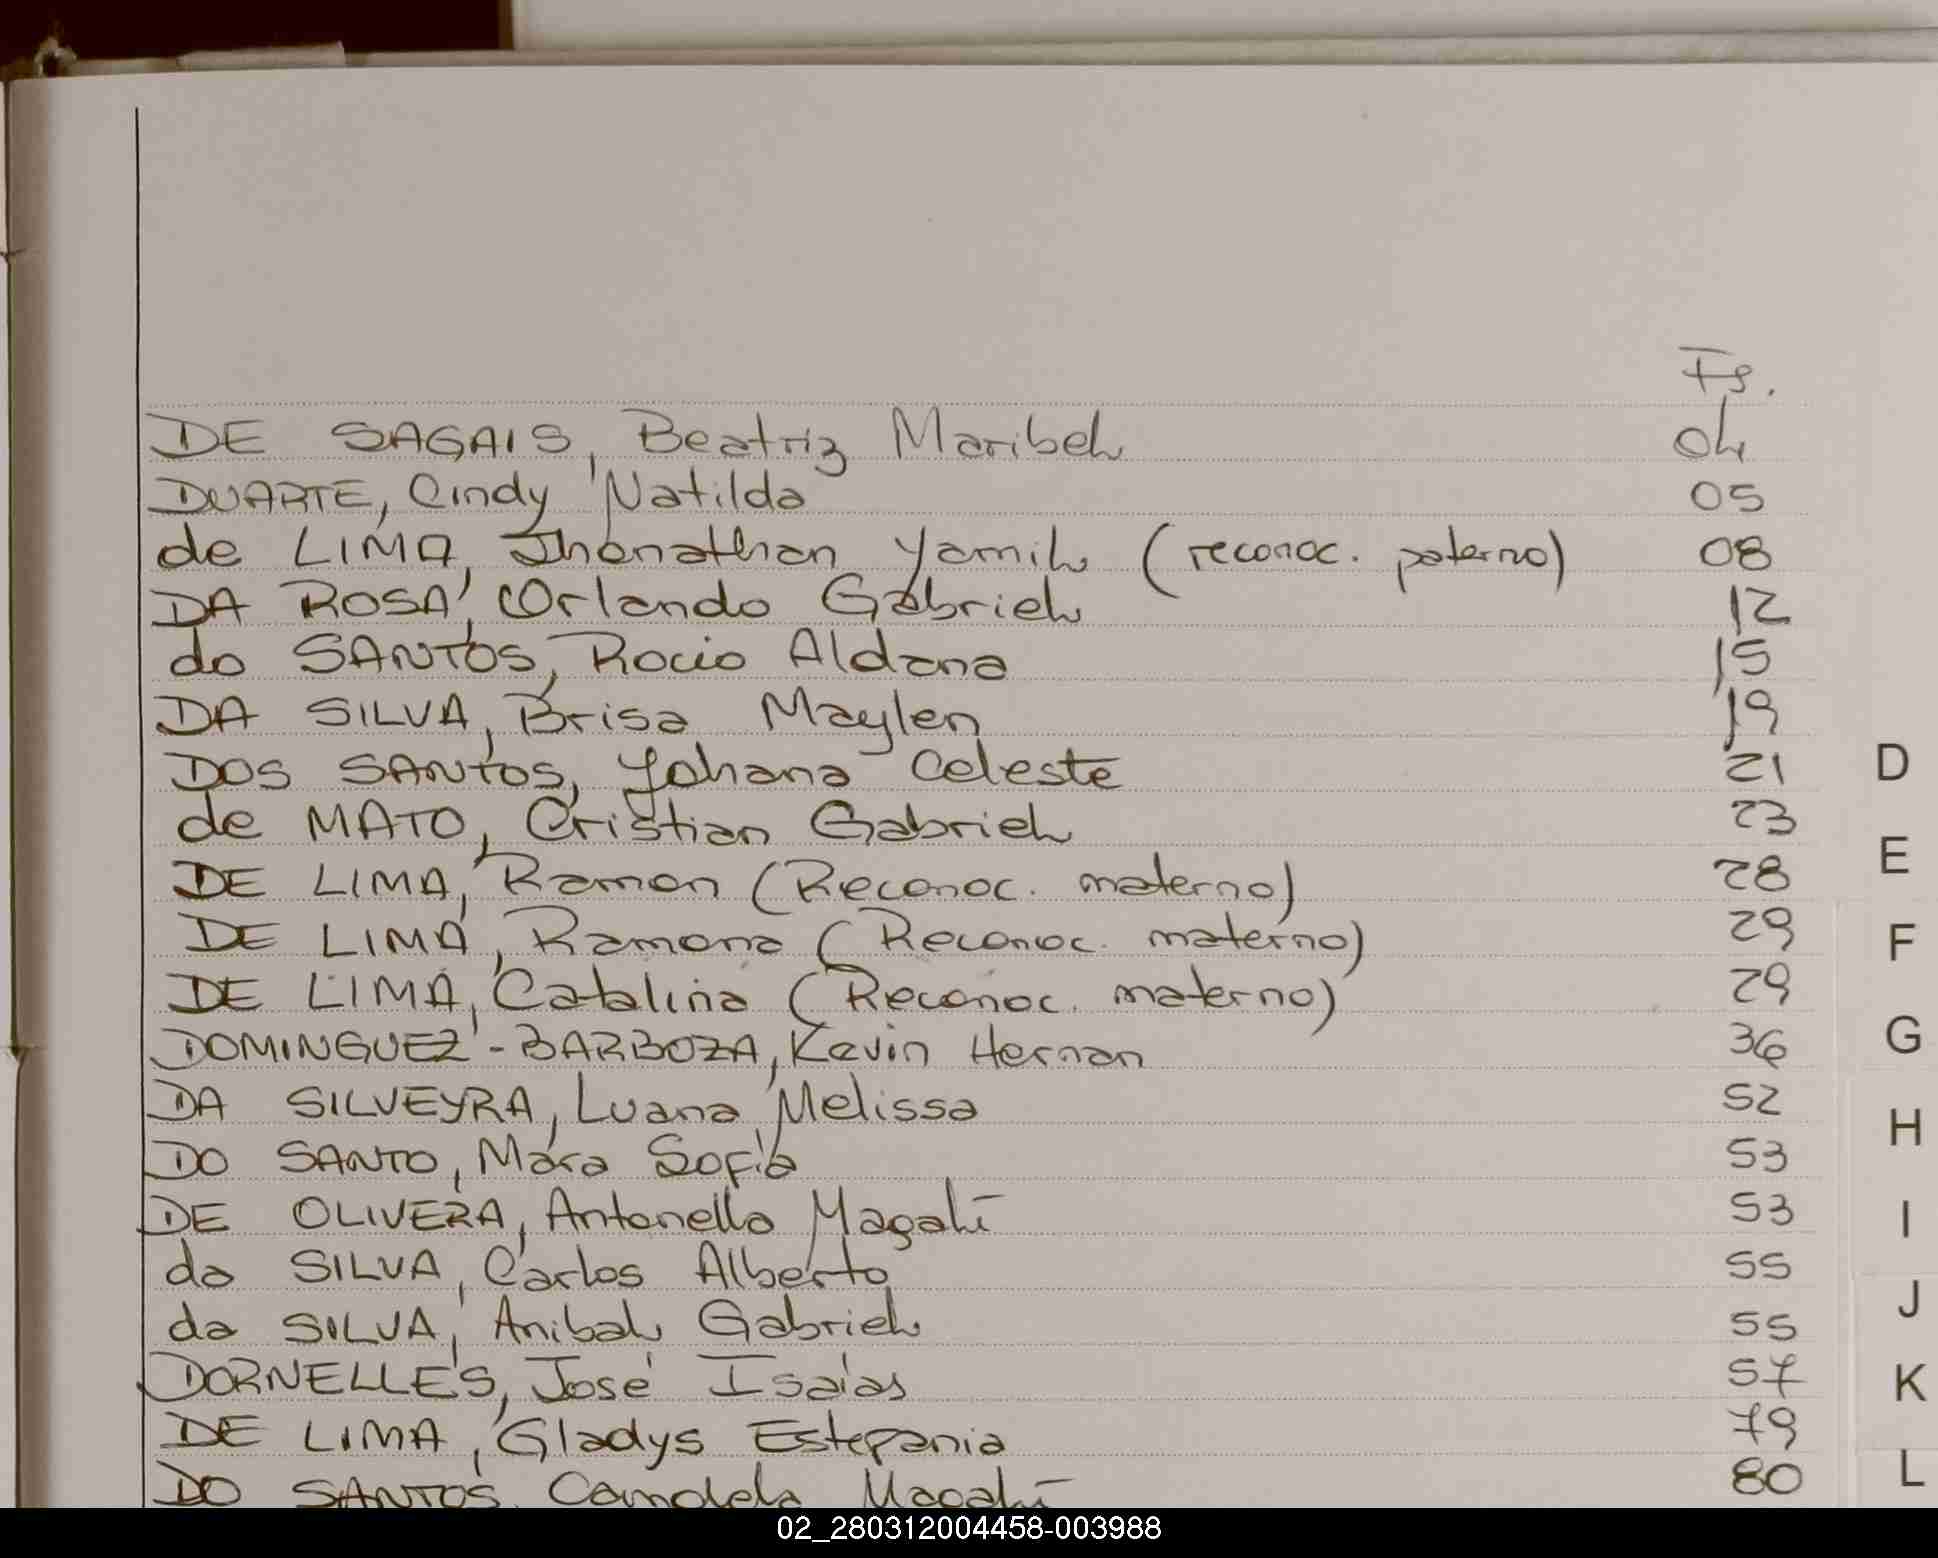 Fs.
DE SAGAIS, Beatriz Maribel 04
DUARTE, Cindy Natilda 05
de LIMA, Jhonathan Yamil (reconoc. paterno) 08
DA ROSA, Orlando Gabriel 12
do SANTOS, Rocio Aldana 15
DA SILVA, Brisa Maylen 19
DOS SANTOS, Yohana Celeste 21
de MATO, Cristian Gabriel 23
DE LIMA, Ramon (Reconoc. materno) 28
DE LIMA, Ramona (Reconoc. materno) 29
DE LIMA, Catalina (Reconoc. materno) 29
DOMINGUEZ - BARBOZA, Kevin Hernan 36
DA SILVEYRA, Luana Melissa 52
DO SANTO, Mara Sofía 53
DE OLIVERA, Antonella Magalí 53
da SILVA, Carlos Alberto 55
da SILVA, Anibal Gabriel 55
DORNELLES, José Isaías 57
DE LIMA, Gladys Estepania 79
DO SANTOS, Candela Magalí 80
D
E
F
G
H
I
J
K
L
02_280312004458-003988